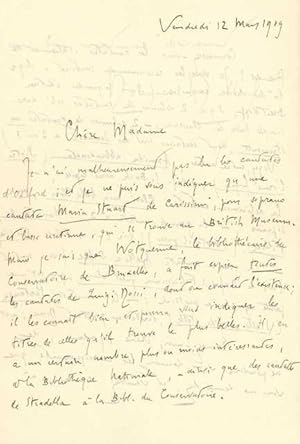 Vendredi 12 Mars 1909
Chère Madame
Je n'ai malheureusement pas lu les cantates
d'Oxford ; et je ne puis vous indiquer qu'une
cantata Maria Stuart de Carissimi, pour soprano
et basse continue, qui se trouve au British Museum.
Mais je sais que Wotquenne, le bibliothécaire du
Conservatoire de Bruxelles, a fait copier toutes
les cantates de Luigi Rossi, dont on connaît l'existence :
il les connaît bien et pourra vous indiquer les
titres de celles qu'il trouve le plus belles. Il y en
a un certain nombre, plus ou moins intéressantes,
à la Bibliothèque Nationale, ainsi que des cantates
de Stradella à la Bibl. du Conservatoire.